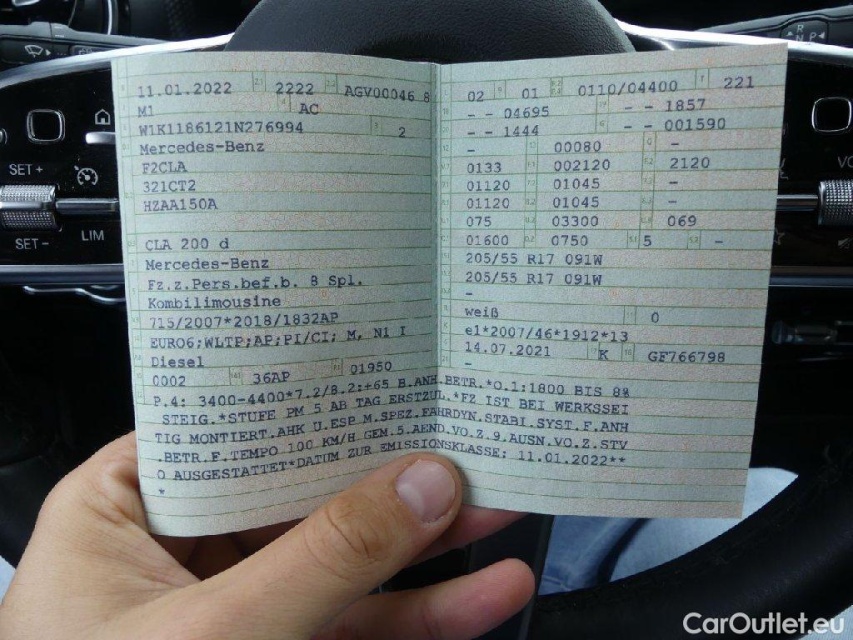 11.01.2022 2222 AGV00046 8
M1 AC
W1K1186121N276994 2
Mercedes-Benz
F2CLA
321CT2
HZAA150A
CLA 200 d
Mercedes-Benz
Fz.z.Pers.bef.b. 8 Spl.
Kombilimousine
715/2007*2018/1832AP
EURO6;WLTP;AP;PI/CI; M, N1 I
Diesel
0002 36AP 01950
02 01 0110/04400 221
- - 04695 - - 1857
- - 1444 - - 001590
- 00080 -
0133 002120 2120
01120 01045 -
01120 01045 -
075 03300 069
01600 0750 5 -
205/55 R17 091W
205/55 R17 091W
-
weiß 0
e1*2007/46*1912*13
14.07.2021 K GF766798
P.4: 3400-4400*7.2/8.2:+65 B.ANH.BETR.*O.1:1800 BIS 8%
STEIG.*STUFE PM 5 AB TAG ERSTZUL.*FZ IST BEI WERKSSEI
TIG MONTIERT.AHK U.ESP M.SPEZ.FAHRDYN.STABI.SYST.F.ANH
.BETR.F.TEMPO 100 KM/H GEM.5.AEND.VO.Z.9.AUSN.VO.Z.STV
O AUSGESTATTET*DATUM ZUR EMISSIONSKLASSE: 11.01.2022**
*
SET +
SET-
LIM
R
N P
CarOutlet.eu